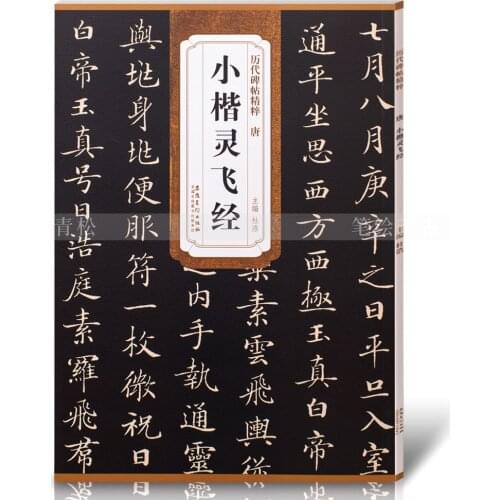 历代碑帖精粹 唐
小楷灵飞经
主编 杜浩
安徽美术出版社
七月八月庚辛之日平旦入室
通平坐思西方西極玉真白帝
素雲飛輿從
之内手執通靈
與兆身兆便服符一枚微祝曰
白帝玉真号曰浩庭素羅飛帬
历代碑帖精粹 唐 小楷灵飞经 主编 杜浩
青松
笔绘